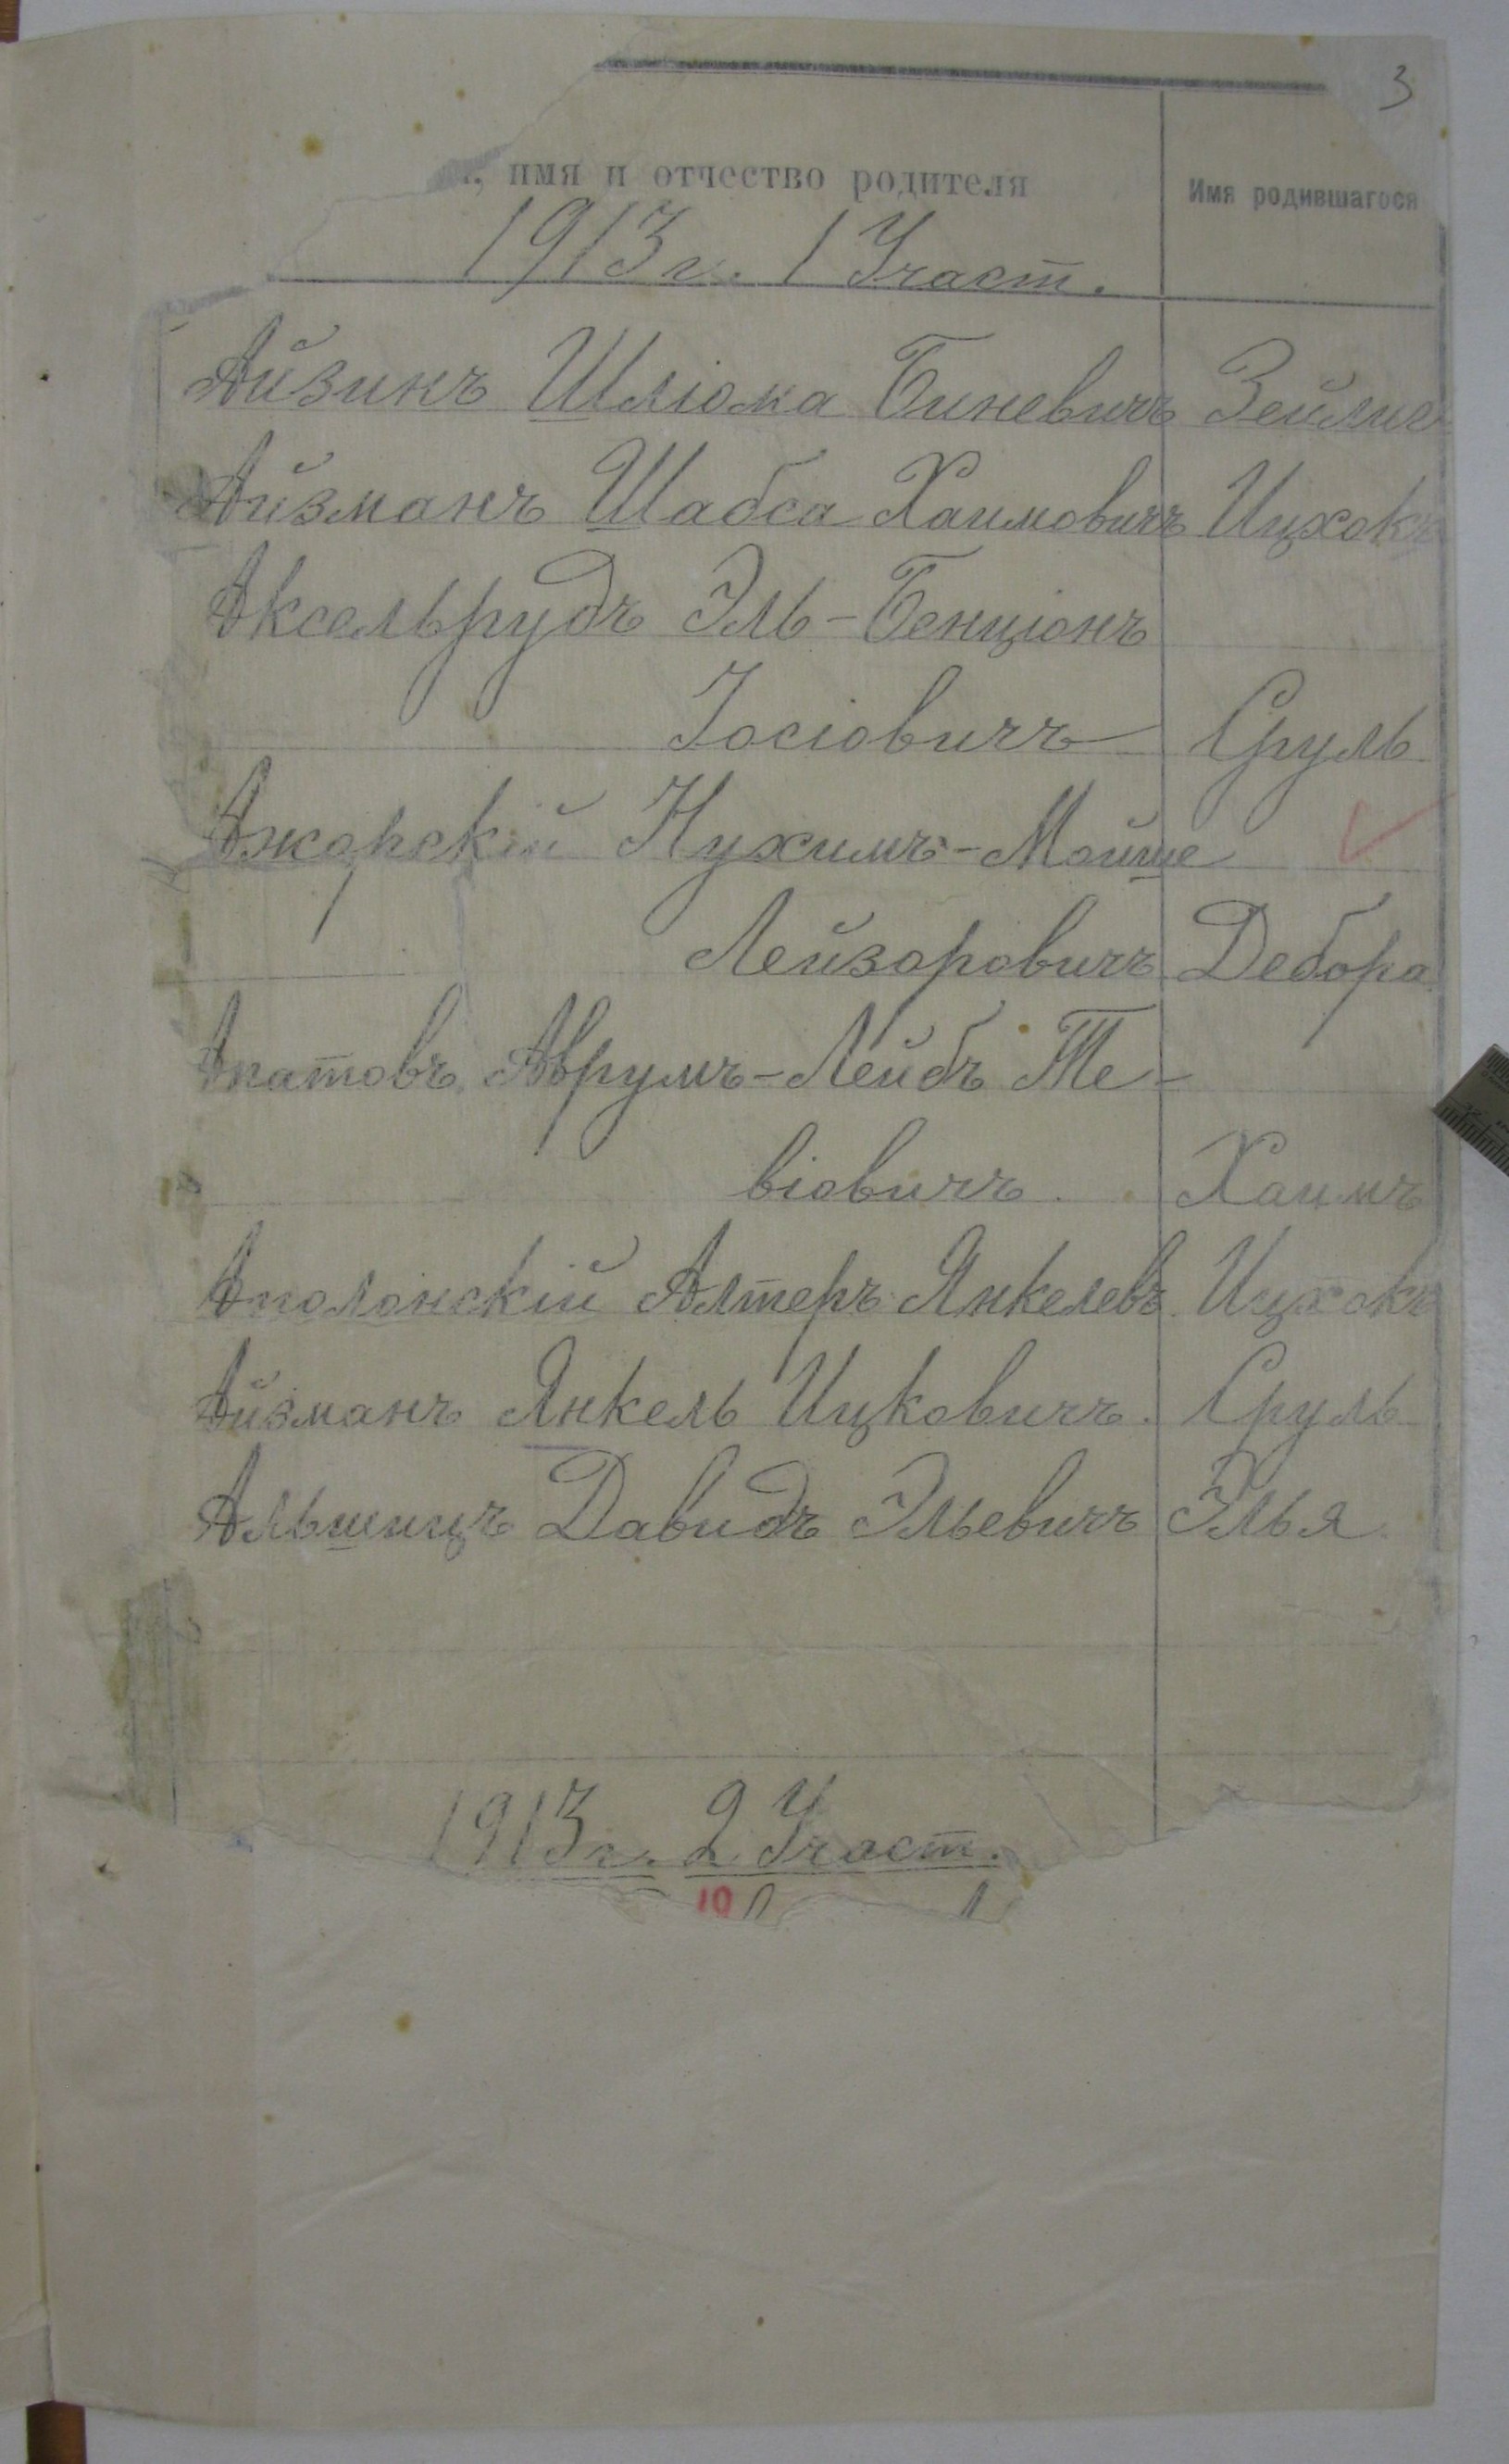 3
имя и отчество родителя Имя родившагося
1913 г. 1 Участ.
Айзинъ Шлiома Биневичъ Зейлиг
Айзманъ Шабса Хаимовичъ Ицхокъ
Аксельрудъ Эль-Бенцiонъ
Iосiовичъ Сруль
Ажорскiй Нухимъ-Мойше
Лейзоровичъ Дебора
Апатовъ Аврумъ-Лейбъ Те-
вiовичъ. Хаимъ
Аполонскiй Алтеръ Янкелевъ Ицхокъ
Айзманъ Янкель Ицковичъ. Сруль
Альшицъ Давидъ Эльевичъ Элья
1913 г. 2 Участ.
10